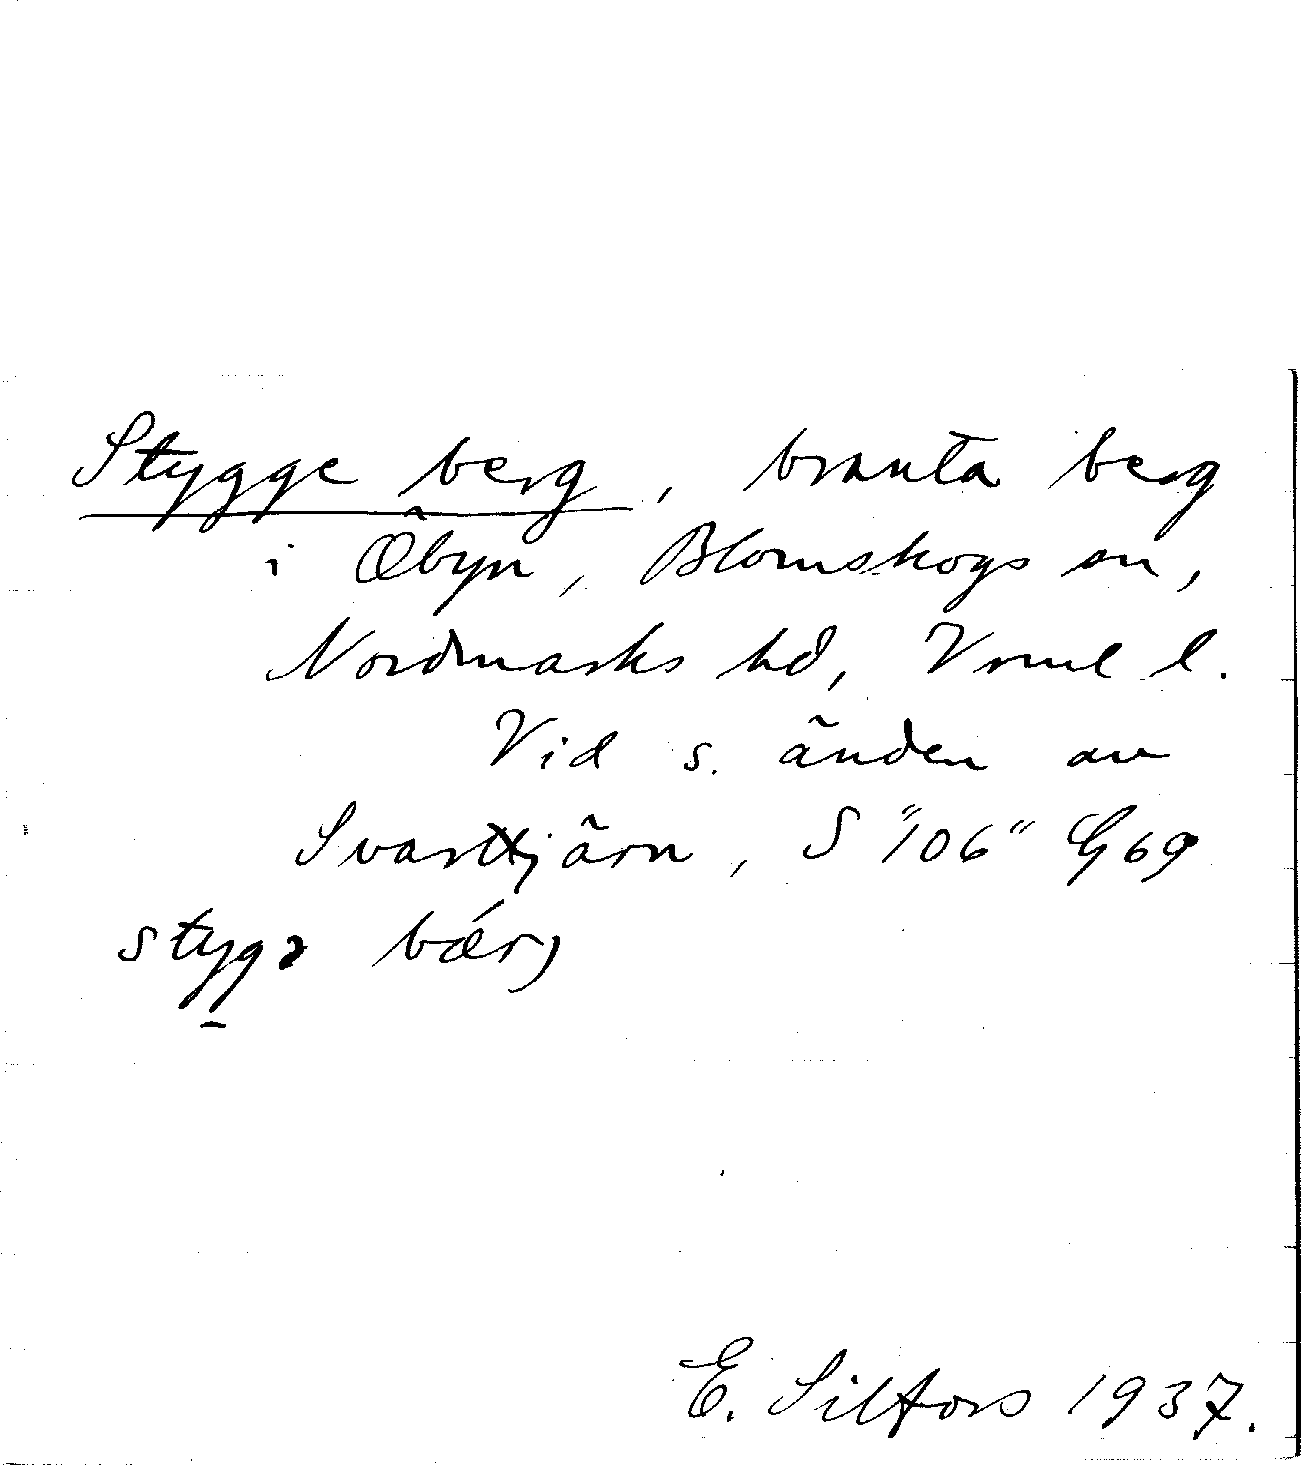 Stygge berg, branta berg
i Öbyn, Blomskogs sn,
Nordmarks hd, Vrml l.
Vid s. änden av
Svarttjärn, S "106" G69
stygə bǽrj
E. Silfors 1937.